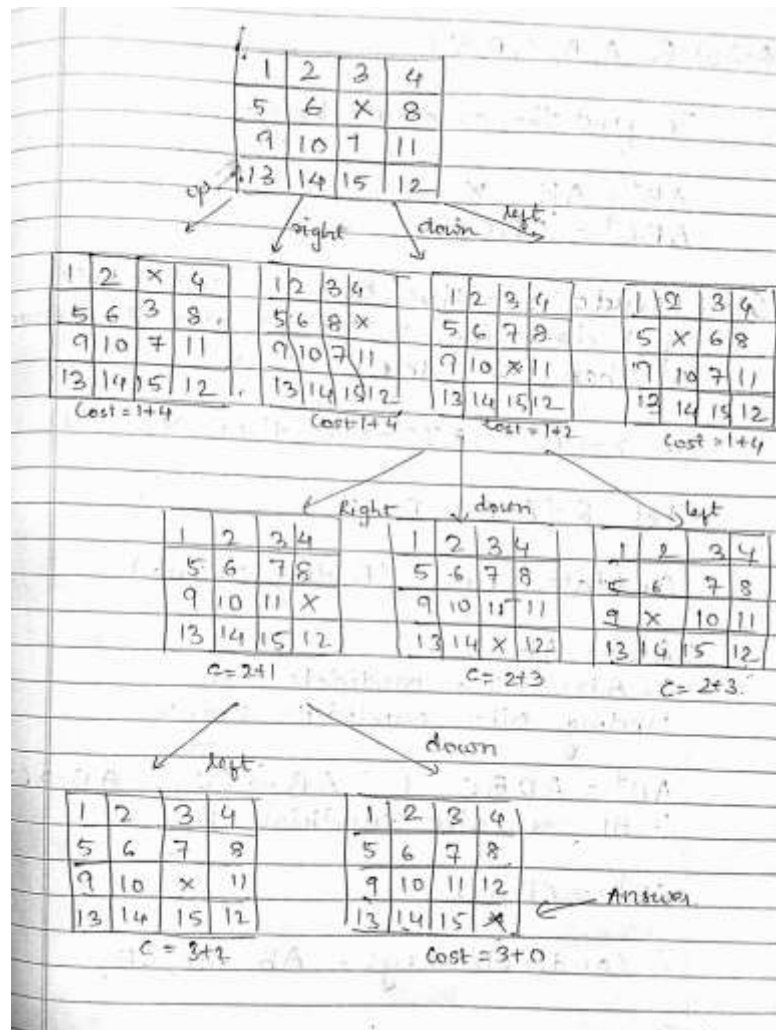 1 2 3 4
5 6 X 8
9 10 7 11
13 14 15 12
up right down left
1 2 X 4
5 6 3 8
9 10 7 11
13 14 15 12
Cost = 1+4
1 2 3 4
5 6 8 X
9 10 7 11
13 14 15 12
Cost 1+4
1 2 3 4
5 6 7 8
9 10 X 11
13 14 15 12
Cost = 1+2
1 2 3 4
5 X 6 8
9 10 7 11
13 14 15 12
Cost = 1+4
Right down left
1 2 3 4
5 6 7 8
9 10 11 X
13 14 15 12
C = 2+1
1 2 3 4
5 6 7 8
9 10 15 11
13 14 X 12
C = 2+3
1 2 3 4
5 6 7 8
9 X 10 11
13 14 15 12
C = 2+3
left down
1 2 3 4
5 6 7 8
9 10 X 11
13 14 15 12
C = 3+2
1 2 3 4
5 6 7 8
9 10 11 12
13 14 15 X
Cost = 3+0
Answer